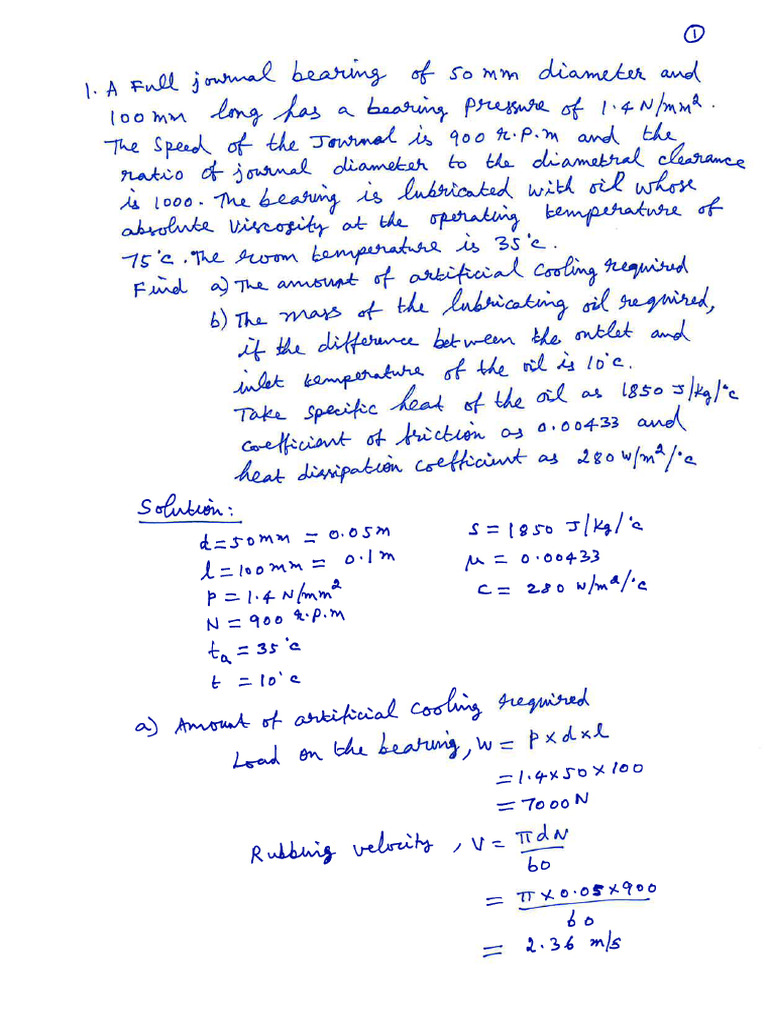 ①
1. A Full journal bearing of 50 mm diameter and
100 mm long has a bearing pressure of 1.4 N/mm².
The speed of the Journal is 900 r.p.m and the
ratio of journal diameter to the diametral clearance
is 1000. The bearing is lubricated with oil whose
absolute viscosity at the operating temperature of
75°c. The room temperature is 35°c.
Find a) The amount of artificial cooling required
b) The mass of the lubricating oil required,
if the difference between the outlet and
inlet temperature of the oil is 10°c.
Take specific heat of the oil as 1850 J/kg/°c
coefficient of friction as 0.00433 and
heat dissipation coefficient as 280 W/m²/°c
Solution:
d = 50 mm = 0.05 m S = 1850 J/kg/°c
l = 100 mm = 0.1 m μ = 0.00433
P = 1.4 N/mm² C = 280 W/m²/°c
N = 900 r.p.m
tₐ = 35°c
t = 10°c
a) Amount of artificial cooling required
Load on the bearing, W = P × d × l
= 1.4 × 50 × 100
= 7000 N
Rubbing velocity, V = πdN / 60
= π × 0.05 × 900 / 60
= 2.36 m/s